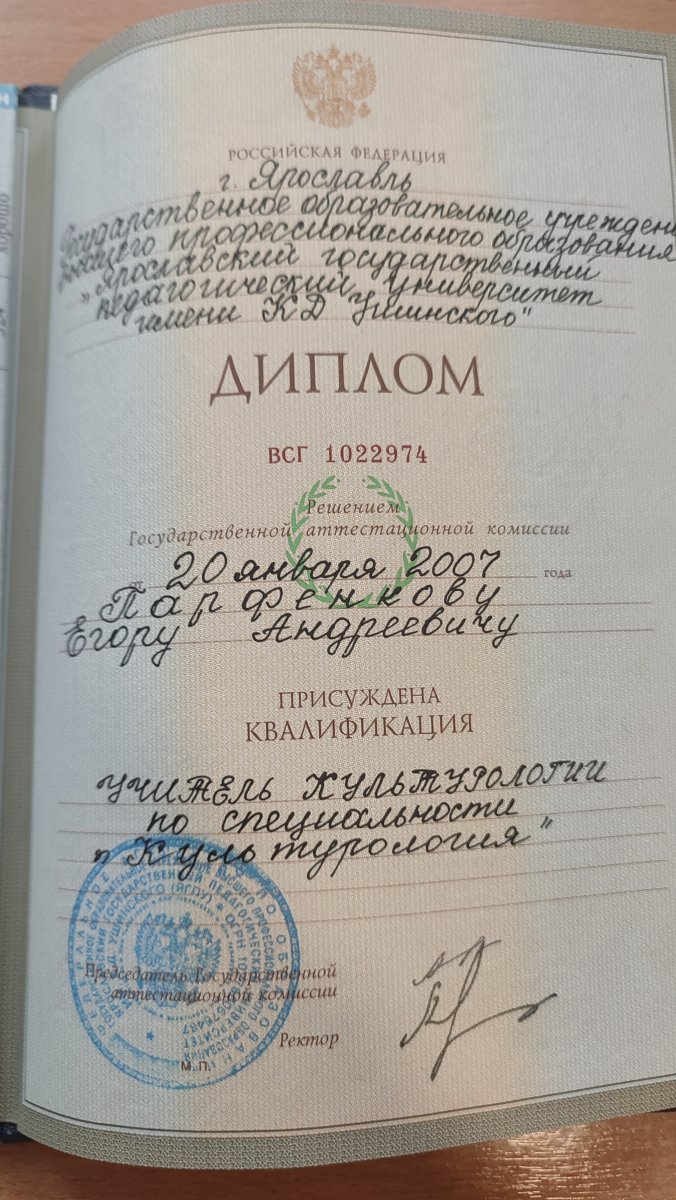 РОССИЙСКАЯ ФЕДЕРАЦИЯ
г. Ярославль
Государственное образовательное учрежден
высшего профессионального образования
"Ярославский государственный
педагогический университет
имени КД Ушинского"
ДИПЛОМ
ВСГ 1022974
Решением
Государственной аттестационной комиссии
от 20 января 2007 года
Парфенкову
Егору Андреевичу
ПРИСУЖДЕНА
КВАЛИФИКАЦИЯ
УЧИТЕЛЬ КУЛЬТУРОЛОГИИ
по специальности
"Культурология"
Председатель Государственной
аттестационной комиссии
Ректор
М.П.
хорошо